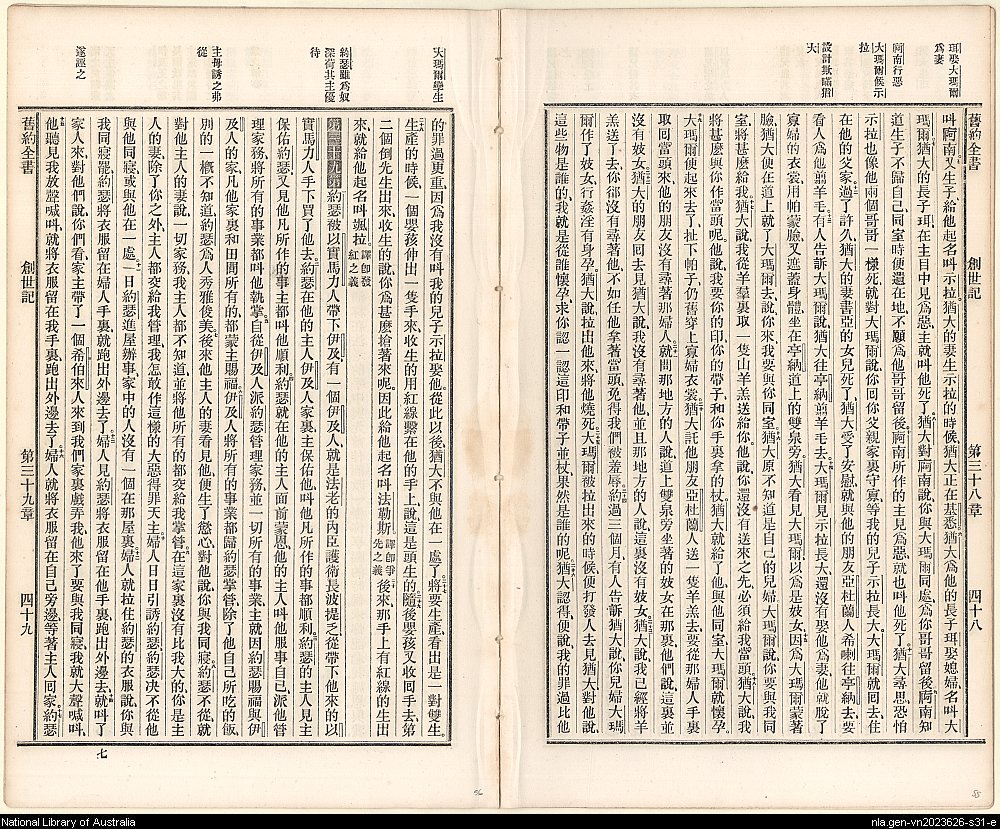 珥娶大瑪爾
爲妻
阿南行惡
大瑪爾候示
拉
設計欺瞞猶
大
舊約全書 創世記 第三十八章 四十八
叫阿南又生子給他起名叫示拉猶大的妻生示拉的時候猶大正在基悉猶大爲他的長子珥娶媳婦名叫大
瑪爾猶大的長子珥在主目中見爲惡主就叫他死了猶大對阿南說你與大瑪爾同處爲你哥哥留後阿南知
道生子不歸自己同室時便遺在地不願爲他哥哥留後阿南所作的主見爲惡就也叫他死了猶大尋思恐怕
示拉也像他兩個哥哥一樣死就對大瑪爾說你囘你父親家裏守寡等我的兒子示拉長大大瑪爾就囘去住
在他的父家過了許久猶大的妻書亞的女兒死了猶大受了安慰就與他的朋友亞杜蘭人希喇往亭納去要
看人爲他翦羊毛有人告訴大瑪爾說猶大往亭納翦羊毛去大瑪爾見示拉長大還沒有娶他爲妻他就脫了
寡婦的衣裳用帕蒙臉又遮蓋身體坐在亭納道上的雙泉旁猶大看見大瑪爾以爲是妓女因爲大瑪爾蒙著
臉猶大便在道上就了大瑪爾去說你來我要與你同室猶大原不知道是自己的兒婦大瑪爾說你要與我同
室將甚麽給我猶大說我從羊羣裏取一隻山羊羔送給你他說你還沒有送來之先必須給我當頭猶大說我
將甚麽與你作當頭呢他說我要你的印你的帶子和你手裏拿的杖猶大就給了他與他同室大瑪爾就懷孕
大瑪爾便起來去了扯下帕子仍舊穿上寡婦衣裳猶大託他朋友亞杜蘭人送一隻羊羔去要從那婦人手裏
取囘當頭來他的朋友沒有尋著那婦人就問那地方的人說道上雙泉旁坐著的妓女在那裏他們說這裏並
沒有妓女猶大的朋友囘去見猶大說我沒有尋著他並且那地方的人說這裏沒有妓女猶大說我已經將羊
羔送了去你卻沒有尋著他不如任他拿著當頭免得我們被羞辱約過三個月有人告訴猶大說你兒婦大瑪
爾作了妓女行姦淫有身孕猶大說拉出他來將他燒死大瑪爾被拉出來的時候便打發人去見猶大對他說
這些物是誰的我就是從誰懷孕求你認一認這印和帶子並杖果然是誰的呢猶大認得便說我的罪過比他
大瑪爾孿生
約瑟雖爲奴
深荷其主優
待
主母誘之弗
從
遂誣之
的罪過更重因爲我沒有叫我的兒子示拉娶他從此以後猶大不與他在一處了將要生產看出是一對雙生
生產的時候一個嬰孩伸出一隻手來收生的用紅線繫在他的手上說這是頭生的隨後嬰孩又收囘手去第
二個倒先生出來收生的說你爲甚麽搶著來呢因此給他起名叫法勒斯譯卽爭先之義後來那手上有紅線的生出
來就給他起名叫颯拉譯卽發紅之義
第三十九章約瑟被以實馬力人帶下伊及有一個伊及人就是法老的內臣護衛長波提乏從帶下他來的以
實馬力人手下買了他去約瑟在他的主人伊及人家裏主保佑他叫他凡所作的事都順利約瑟的主人見主
保佑約瑟又見他凡所作的事主都叫他順利約瑟就在他的主人面前蒙恩他的主人叫他服事自己派他管
理家務將所有的事業都叫他執掌自從伊及人派約瑟管理家務並一切所有的事業主就因約瑟賜福與伊
及人的家凡他家裏和田間所有的都蒙主賜福伊及人將所有的事業都歸約瑟掌管除了他自己所吃的飯
別的一槪不知道約瑟爲人秀雅俊美後來他主人的妻看見他便生了慾心對他說你與我同寢約瑟不從就
對他主人的妻說一切家務我主人都不知道並將他所有的都交給我掌管在這家裏沒有比我大的你是主
人的妻除了你之外主人都交給我管理我怎敢作這樣的大惡得罪天主婦人日日引誘約瑟約瑟決不從他
與他同寢或與他在一處一日約瑟進屋辦事家中的人沒有一個在那屋裏婦人就拉住約瑟的衣服說你與
我同寢罷約瑟將衣服留在婦人手裏就跑出外邊去了婦人見約瑟將衣服留在他手裏跑出外邊去就叫了
家人來對他們說你們看家主帶了一個希伯來人來到我們家裏戲弄我他來了要與我同寢我就大聲喊叫
他聽見我放聲喊叫就將衣服留在我手裏跑出外邊去了婦人就將衣服留在自己旁邊等著主人囘家約瑟
舊約全書 創世記 第三十九章 四十九
七
National Library of Australia
nla.gen-vn2023626-s31-e